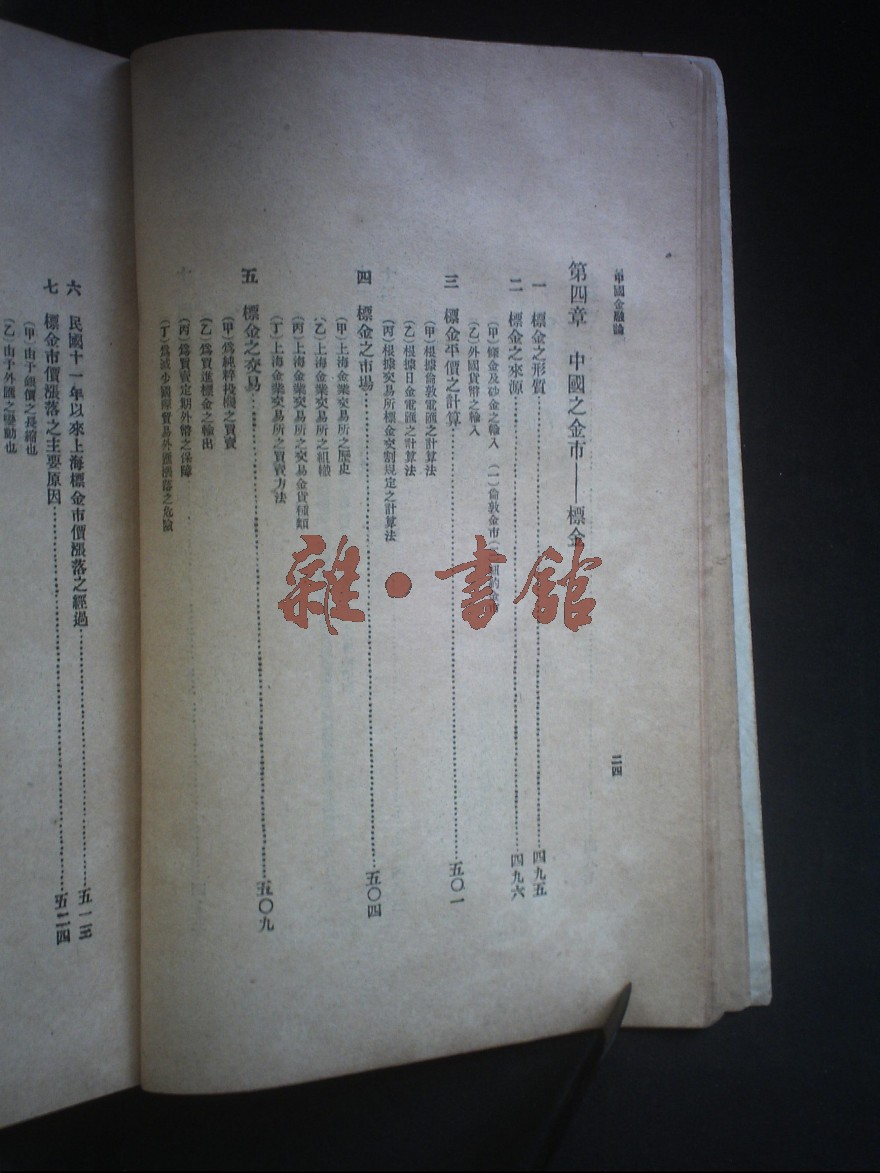 中國金融論
二四
第四章 中國之金市——標金
一 標金之形質……四九五
二 標金之來源……四九六
(甲)條金及砂金之輸入 (一)倫敦金市
(乙)外國貨幣之輸入
三 標金平價之計算……五〇一
(甲)根據倫敦電匯之計算法
(乙)根據日金電匯之計算法
(丙)根據交易所標金交割規定之計算法
四 標金之市場……五〇四
(甲)上海金業交易所之歷史
(乙)上海金業交易所之組織
(丙)上海金業交易所之交易金貨種類
(丁)上海金業交易所之買賣方法
五 標金之交易……五〇九
(甲)爲純粹投機之買賣
(乙)爲買進標金之輸出
(丙)爲買賣定期外幣之保障
(丁)爲減少國際貿易外匯漲落之危險
六 民國十一年以來上海標金市價漲落之經過……五一三
七 標金市價漲落之主要原因……五二四
(甲)由于銀價之長縮也
(乙)由于外匯之變動也
雜·書館